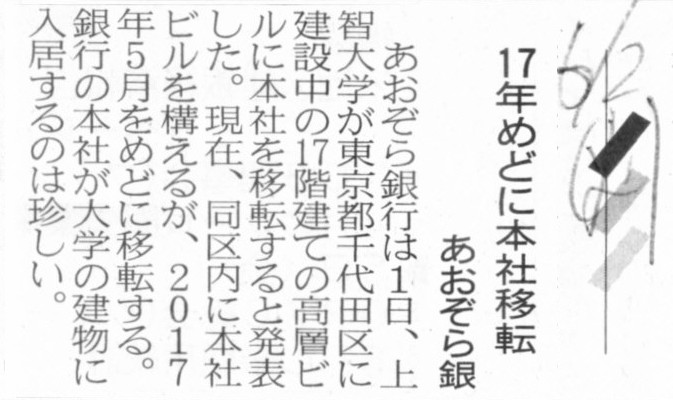 17年めどに本社移転
あおぞら銀
あおぞら銀行は1日、上
智大学が東京都千代田区に
建設中の17階建ての高層ビ
ルに本社を移転すると発表
した。現在、同区内に本社
ビルを構えるが、2017
年5月をめどに移転する。
銀行の本社が大学の建物に
入居するのは珍しい。